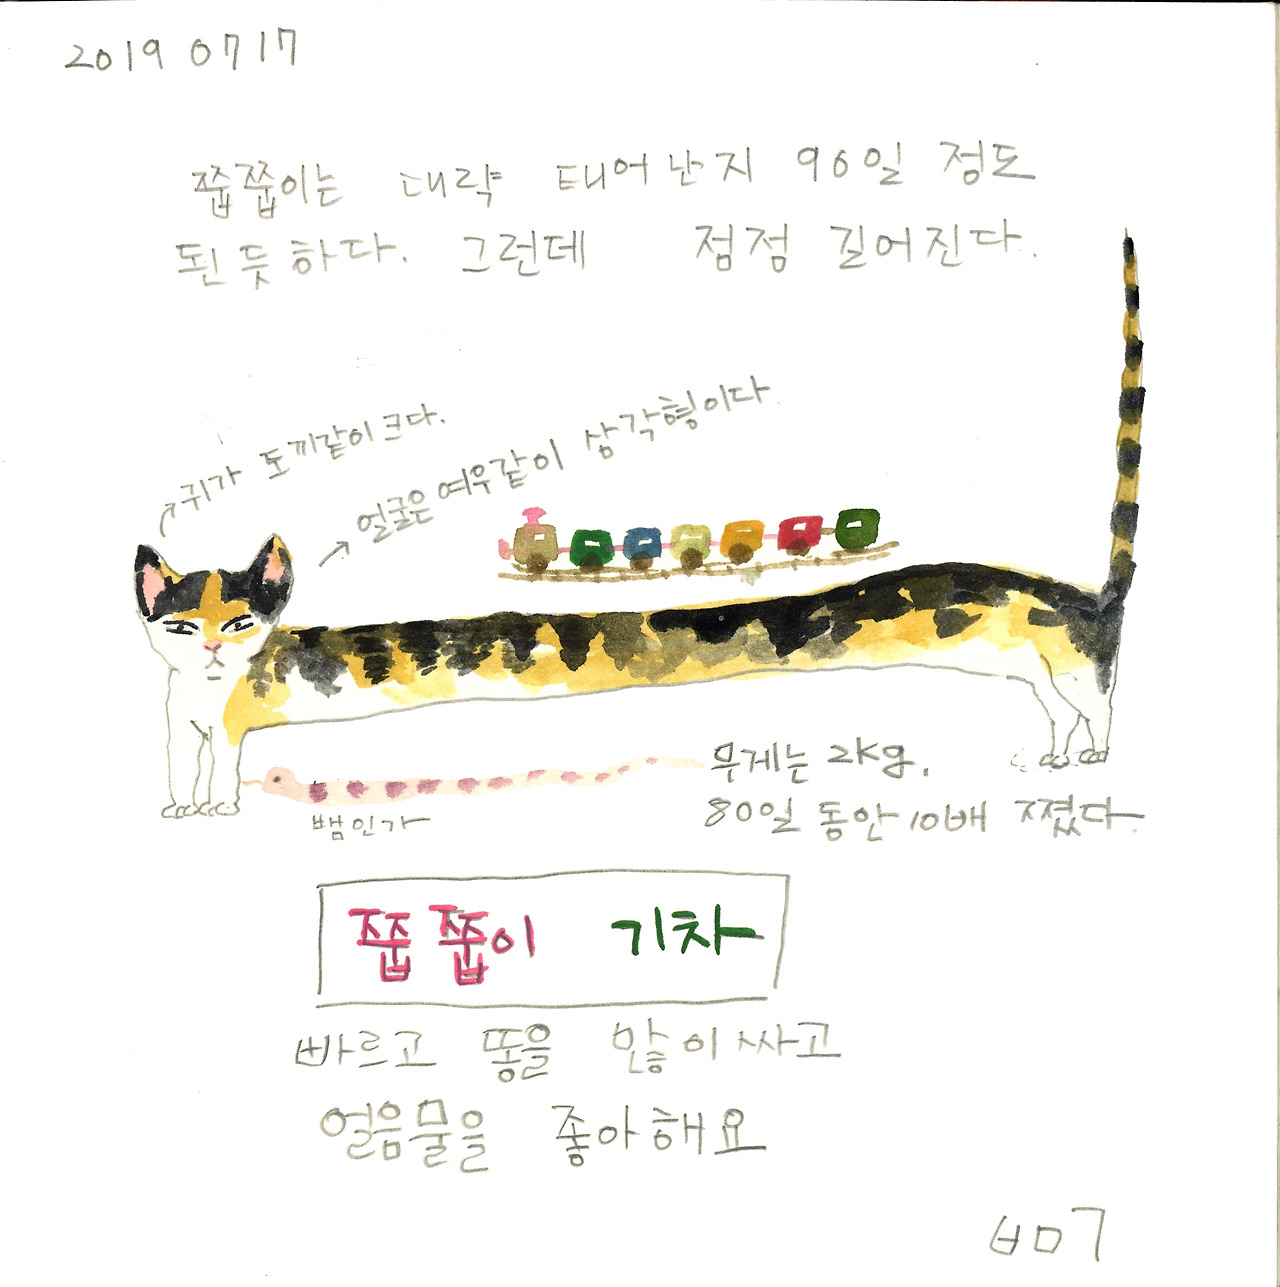 2019 07 17
쭙쭙이는 대략 태어난지 90일 정도
된듯하다. 그런데 점점 길어진다.
귀가 토끼같이 크다.
얼굴은 여우같이 삼각형이다
무게는 2kg.
80일 동안 10배 쪘다.
뱀인가
쭙쭙이 기차
빠르고 똥을 많이 싸고
얼음물을 좋아해요
ㅂㅁㄱ